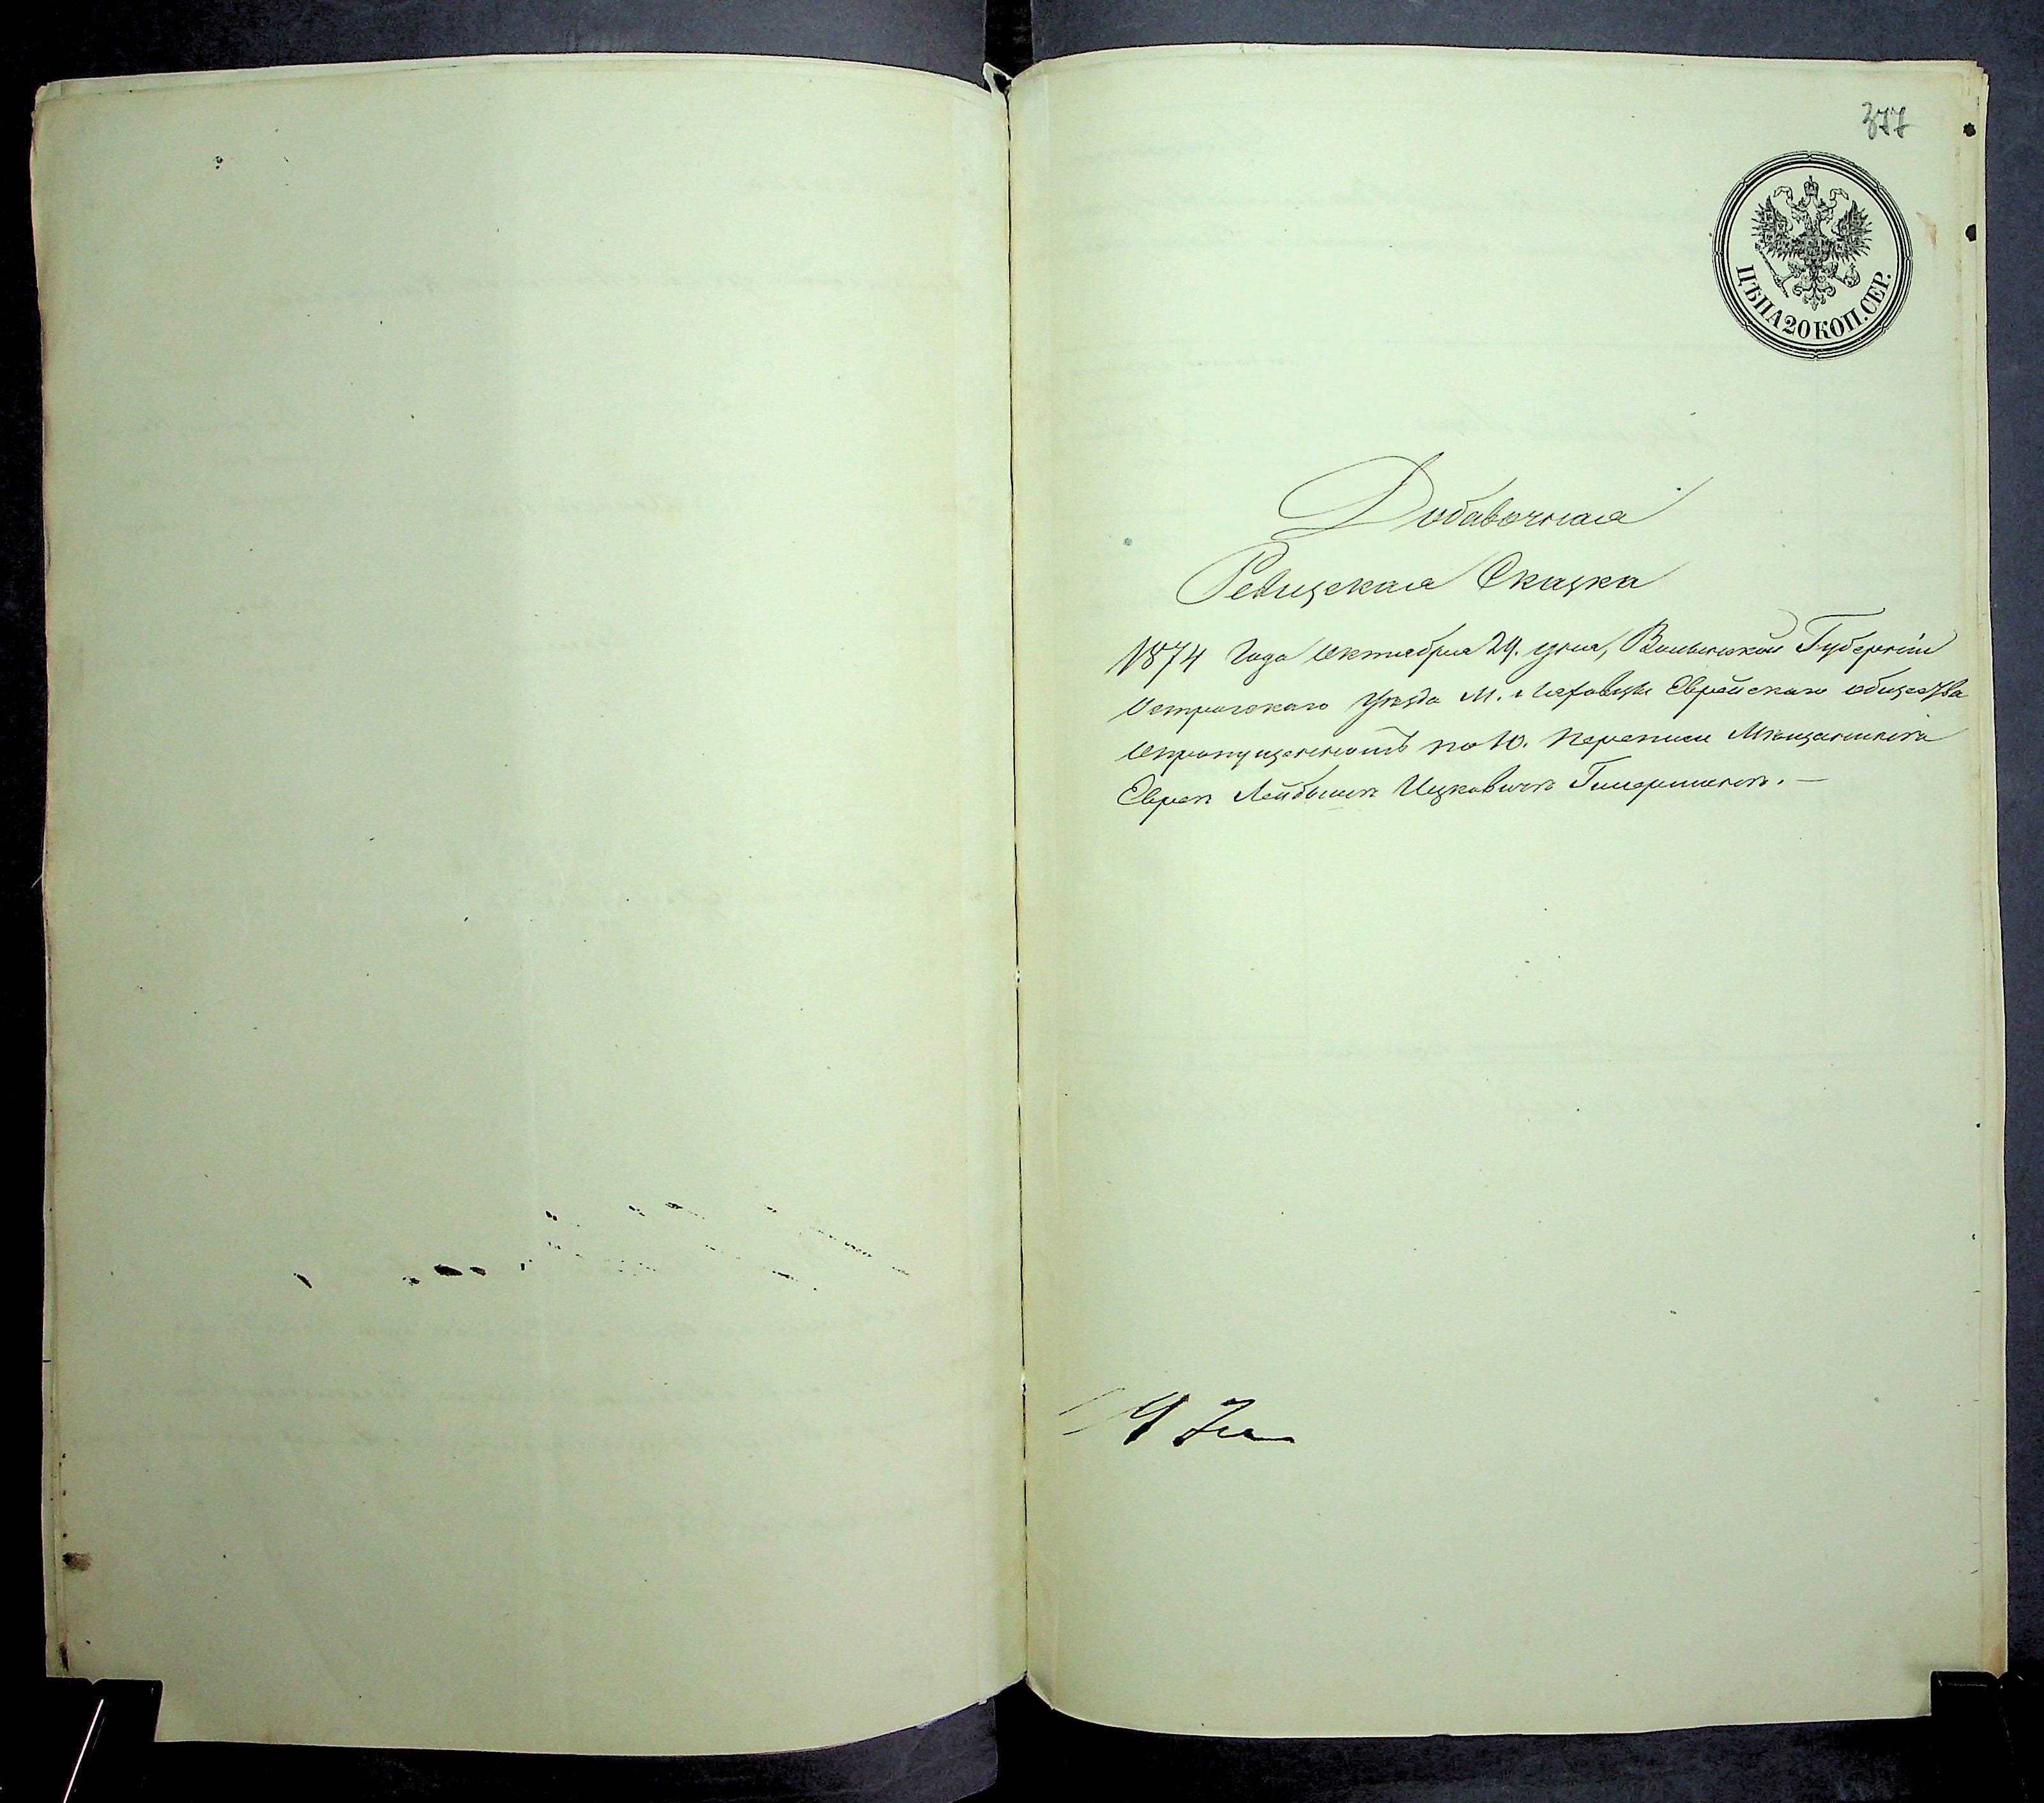 377
ЦѢНА 20 КОП. СЕР.
Добавочная
Ревизская Сказка
1874 года Октября 29. дня, Волынской Губерніи
Острогскаго уѣзда М. Ляховцы Еврейскаго общества
О пропущенномъ по 10. переписи Мѣщанинѣ
Евреѣ Лейбишѣ Ицковичѣ